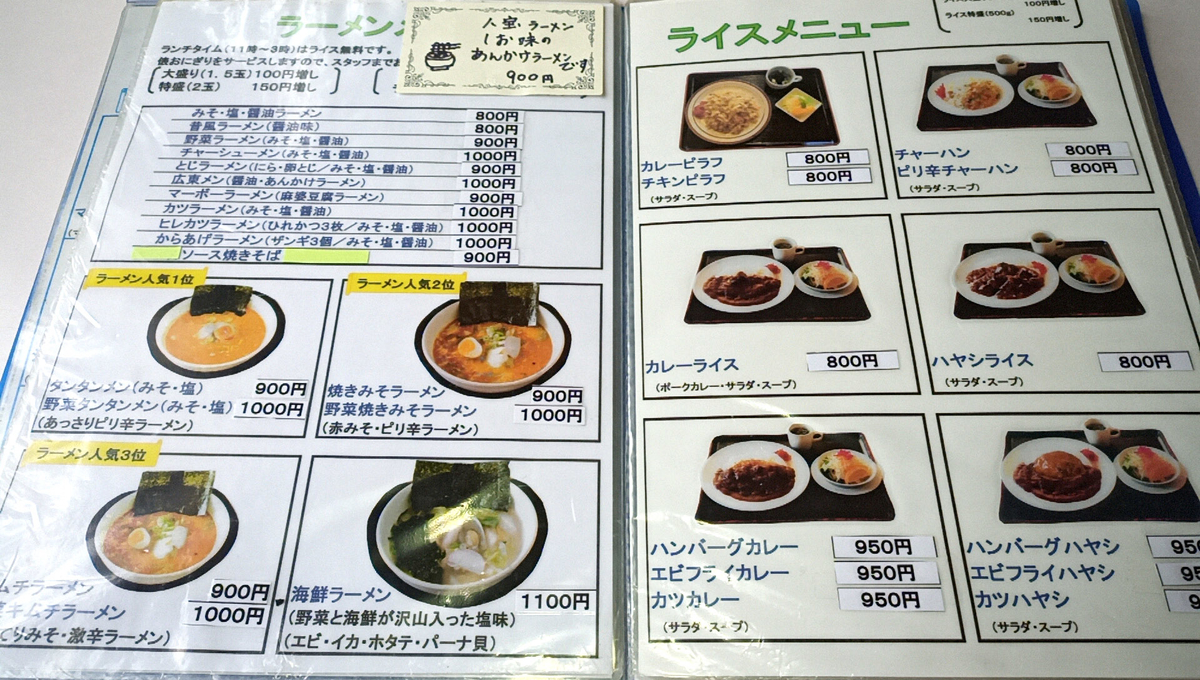 ラーメン
ランチタイム(11時～3時)はライス無料です。
俵おにぎりをサービスしますので、スタッフまでお
大盛り(1.5玉)100円増し
特盛(2玉) 150円増し
ラーメン
しお味の
あんかけラーメン
です
900円
みそ・塩・醤油ラーメン 800円
昔風ラーメン(醤油味) 800円
野菜ラーメン(みそ・塩・醤油) 900円
チャーシューメン(みそ・塩・醤油) 1000円
とじラーメン(にら・卵とじ/みそ・塩・醤油) 900円
広東メン(醤油・あんかけラーメン) 1000円
マーボーラーメン(麻婆豆腐ラーメン) 900円
カツラーメン(みそ・塩・醤油) 1000円
ヒレカツラーメン(ひれかつ3枚/みそ・塩・醤油) 1000円
からあげラーメン(ザンギ3個/みそ・塩・醤油) 1000円
ソース焼きそば 900円
ラーメン人気1位
タンタンメン(みそ・塩) 900円
野菜タンタンメン(みそ・塩) 1000円
(あっさりピリ辛ラーメン)
ラーメン人気2位
焼きみそラーメン 900円
野菜焼きみそラーメン 1000円
(赤みそ・ピリ辛ラーメン)
ラーメン人気3位
ムチラーメン 900円
キムチラーメン 1000円
てりみそ・激辛ラーメン)
海鮮ラーメン 1100円
(野菜と海鮮が沢山入った塩味)
(エビ・イカ・ホタテ・パーナ貝)
ライスメニュー
100円増し
ライス特盛(500g) 150円増し
カレーピラフ 800円
チキンピラフ 800円
(サラダ・スープ)
チャーハン 800円
ピリ辛チャーハン 800円
(サラダ・スープ)
カレーライス 800円
(ポークカレー・サラダ・スープ)
ハヤシライス 800円
(サラダ・スープ)
ハンバーグカレー 950円
エビフライカレー 950円
カツカレー 950円
(サラダ・スープ)
ハンバーグハヤシ 950
エビフライハヤシ 95
カツハヤシ 9
(サラダ・スープ)